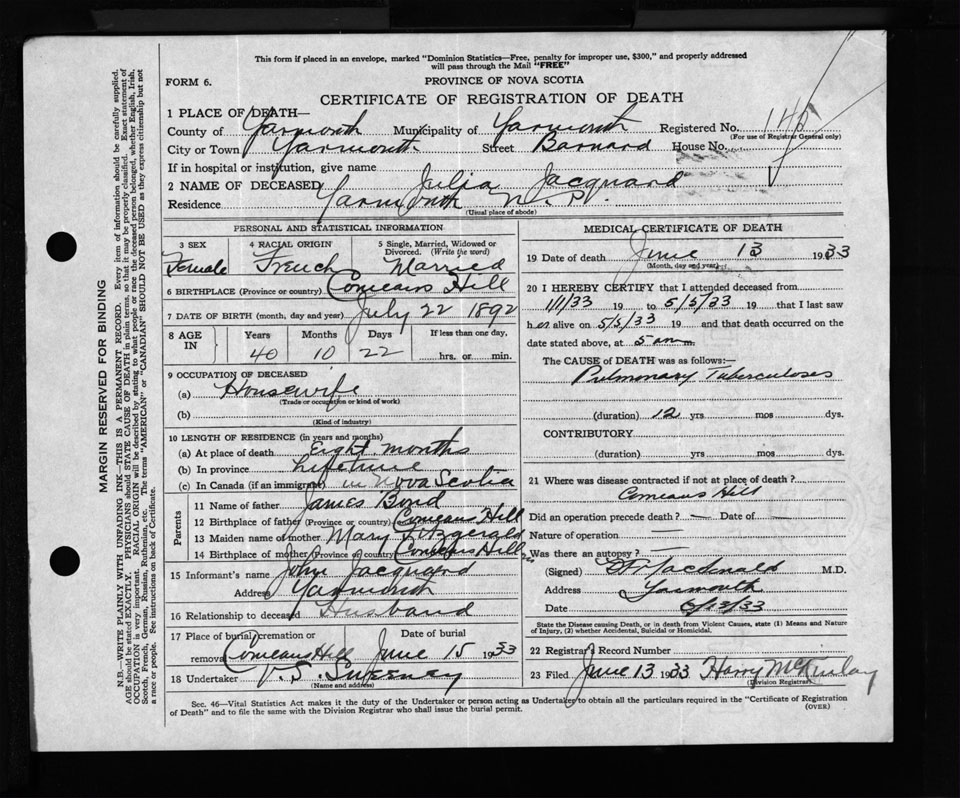 This form if placed in an envelope, marked "Dominion Statistics—Free, penalty for improper use, $300," and properly addressed
will pass through the Mail "FREE"
FORM 6.
PROVINCE OF NOVA SCOTIA
CERTIFICATE OF REGISTRATION OF DEATH
1 PLACE OF DEATH—
County of Yarmouth Municipality of Yarmouth Registered No. 140
(For use of Registrar General only)
City or Town Yarmouth Street Barnard House No.
If in hospital or institution, give name
2 NAME OF DECEASED Julia Jacquard
Residence Yarmouth N.S.
(Usual place of abode)
PERSONAL AND STATISTICAL INFORMATION
3 SEX 4 RACIAL ORIGIN 5 Single, Married, Widowed or
Divorced. (Write the word)
Female French Married
6 BIRTHPLACE (Province or country) Comeaus Hill
7 DATE OF BIRTH (month, day and year) July 22 1892
8 AGE IN Years Months Days If less than one day,
40 10 22 hrs. or min.
9 OCCUPATION OF DECEASED
(a) Housewife
(Trade or occupation or kind of work)
(b)
(Kind of industry)
10 LENGTH OF RESIDENCE (in years and months)
(a) At place of death Eight months
(b) In province Lifetime
(c) In Canada (if an immigrant) in Nova Scotia
Parents
11 Name of father James Bond
12 Birthplace of father (Province or country) Comeaus Hill
13 Maiden name of mother Mary Fitzgerald
14 Birthplace of mother (Province or country) Comeaus Hill
15 Informant's name John Jacquard
Address Yarmouth
16 Relationship to deceased Husband
17 Place of burial, cremation or Date of burial
removal Comeaus Hill June 15 1933
18 Undertaker V. S. Sweeney
(Name and address)
MEDICAL CERTIFICATE OF DEATH
19 Date of death June 13 1933
(Month, day and year)
20 I HEREBY CERTIFY that I attended deceased from
1/1/33 19 to 5/5/33 19 that I last saw
her alive on 5/5/33 19 and that death occurred on the
date stated above, at 5 am m.
The CAUSE of DEATH was as follows:—
Pulmonary Tuberculoses
(duration) 12 yrs mos dys.
CONTRIBUTORY
(duration) yrs. mos. dys.
21 Where was disease contracted if not at place of death?
Comeaus Hill
Did an operation precede death? — Date of —
Nature of operation —
Was there an autopsy? —
(Signed) Macdonald M.D.
Address Yarmouth
Date 6/13/33
State the Disease causing Death, or in death from Violent Causes, state (1) Means and Nature
of Injury, (2) whether Accidental, Suicidal or Homicidal.
22 Registrar's Record Number
23 Filed June 13 1933 Harry McKinlay
(Division Registrar)
Sec. 46—Vital Statistics Act makes it the duty of the Undertaker or person acting as Undertaker to obtain all the particulars required in the "Certificate of Registration
of Death" and to file the same with the Division Registrar who shall issue the burial permit. (OVER)
MARGIN RESERVED FOR BINDING
N.B.—WRITE PLAINLY WITH UNFADING INK—THIS IS A PERMANENT RECORD. Every item of information should be carefully supplied.
AGE should be stated EXACTLY. PHYSICIANS should STATE CAUSE OF DEATH in plain terms, so that it may be properly classified. Exact statement of
OCCUPATION is very important. RACIAL ORIGIN will be described by stating to what people or race the deceased person belonged, whether English, Irish,
Scotch, French, German, Russian, Ruthenian, etc. The terms "AMERICAN" or "CANADIAN" SHOULD NOT BE USED as they express citizenship but not
a race or people. See instructions on back of Certificate.